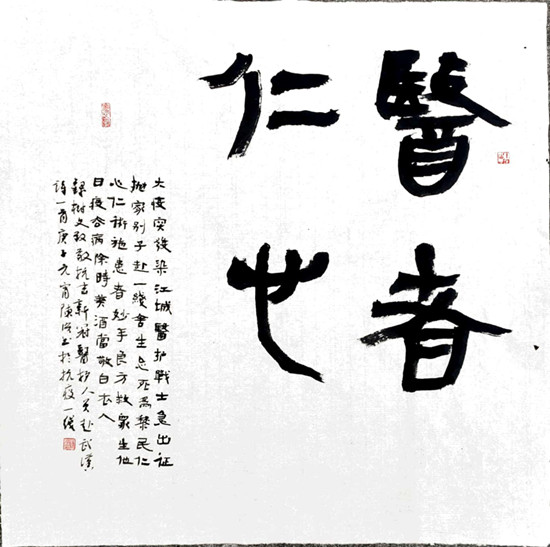 醫者
仁也
大疫突發染江城醫护戰士急出征
抛家别子赴一綫舍生忘死為黎民仁
心仁術施患者妙手良方救眾生他
日疫去病除時美酒當敬白衣人
録樹文致敬抗击新冠醫护人员赴武漢
詩一首庚子元宵陳書於抗疫一綫